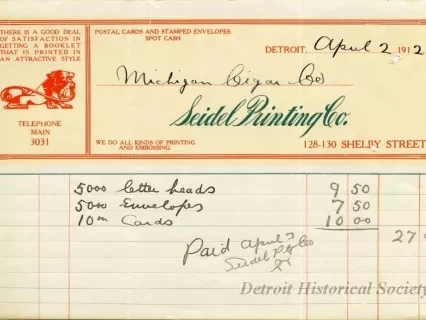 THERE IS A GOOD DEAL
OF SATISFACTION IN
GETTING A BOOKLET
THAT IS PRINTED IN
AN ATTRACTIVE STYLE
TELEPHONE
MAIN
3031
POSTAL CARDS AND STAMPED ENVELOPES
SPOT CASH
DETROIT, April 2 1912
Michigan Cigar Co
Seidel Printing Co.
WE DO ALL KINDS OF PRINTING
AND EMBOSSING
128-130 SHELBY STREET
5000 letter heads 9 50
5000 Envelopes 7 50
Cards 10 00
27
Paid April 3
Seidel
Detroit Historical Society